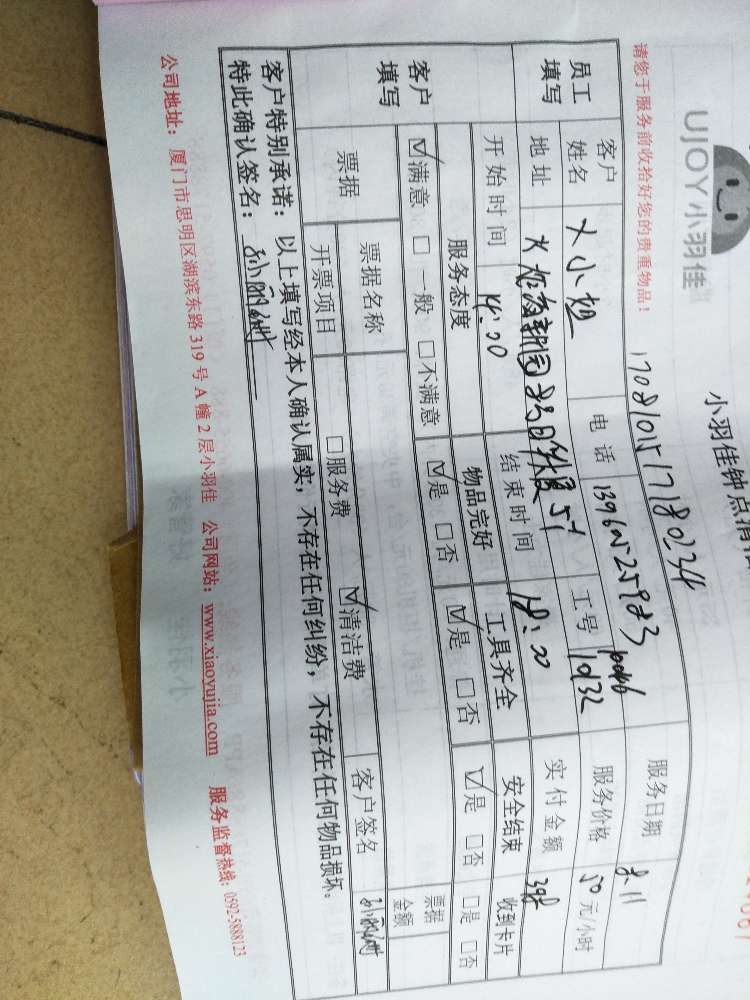 UJOY小羽佳
小羽佳钟点清
请您于服务前收拾好您的贵重物品！
服务日期 8.11
员工填写
客户姓名 小姐 电话 工号 1032 服务价格 50 元/小时
地址 实付金额 398
开始时间 14:00 结束时间 18:00
客户填写
服务态度 物品完好 工具齐全 安全结束 收到卡片
☑满意 □一般 □不满意 ☑是 □否 ☑是 □否 ☑是 □否 □是 □否
票据 票据名称 票据金额
开票项目 □服务费 ☑清洁费 客户签名
客户特别承诺：以上填写经本人确认属实，不存在任何纠纷，不存在任何物品损坏。
特此确认签名：
公司地址：厦门市思明区湖滨东路 319 号 A 幢 2 层小羽佳 公司网站：www.xiaoyujia.com 服务监督热线：0592-5888123